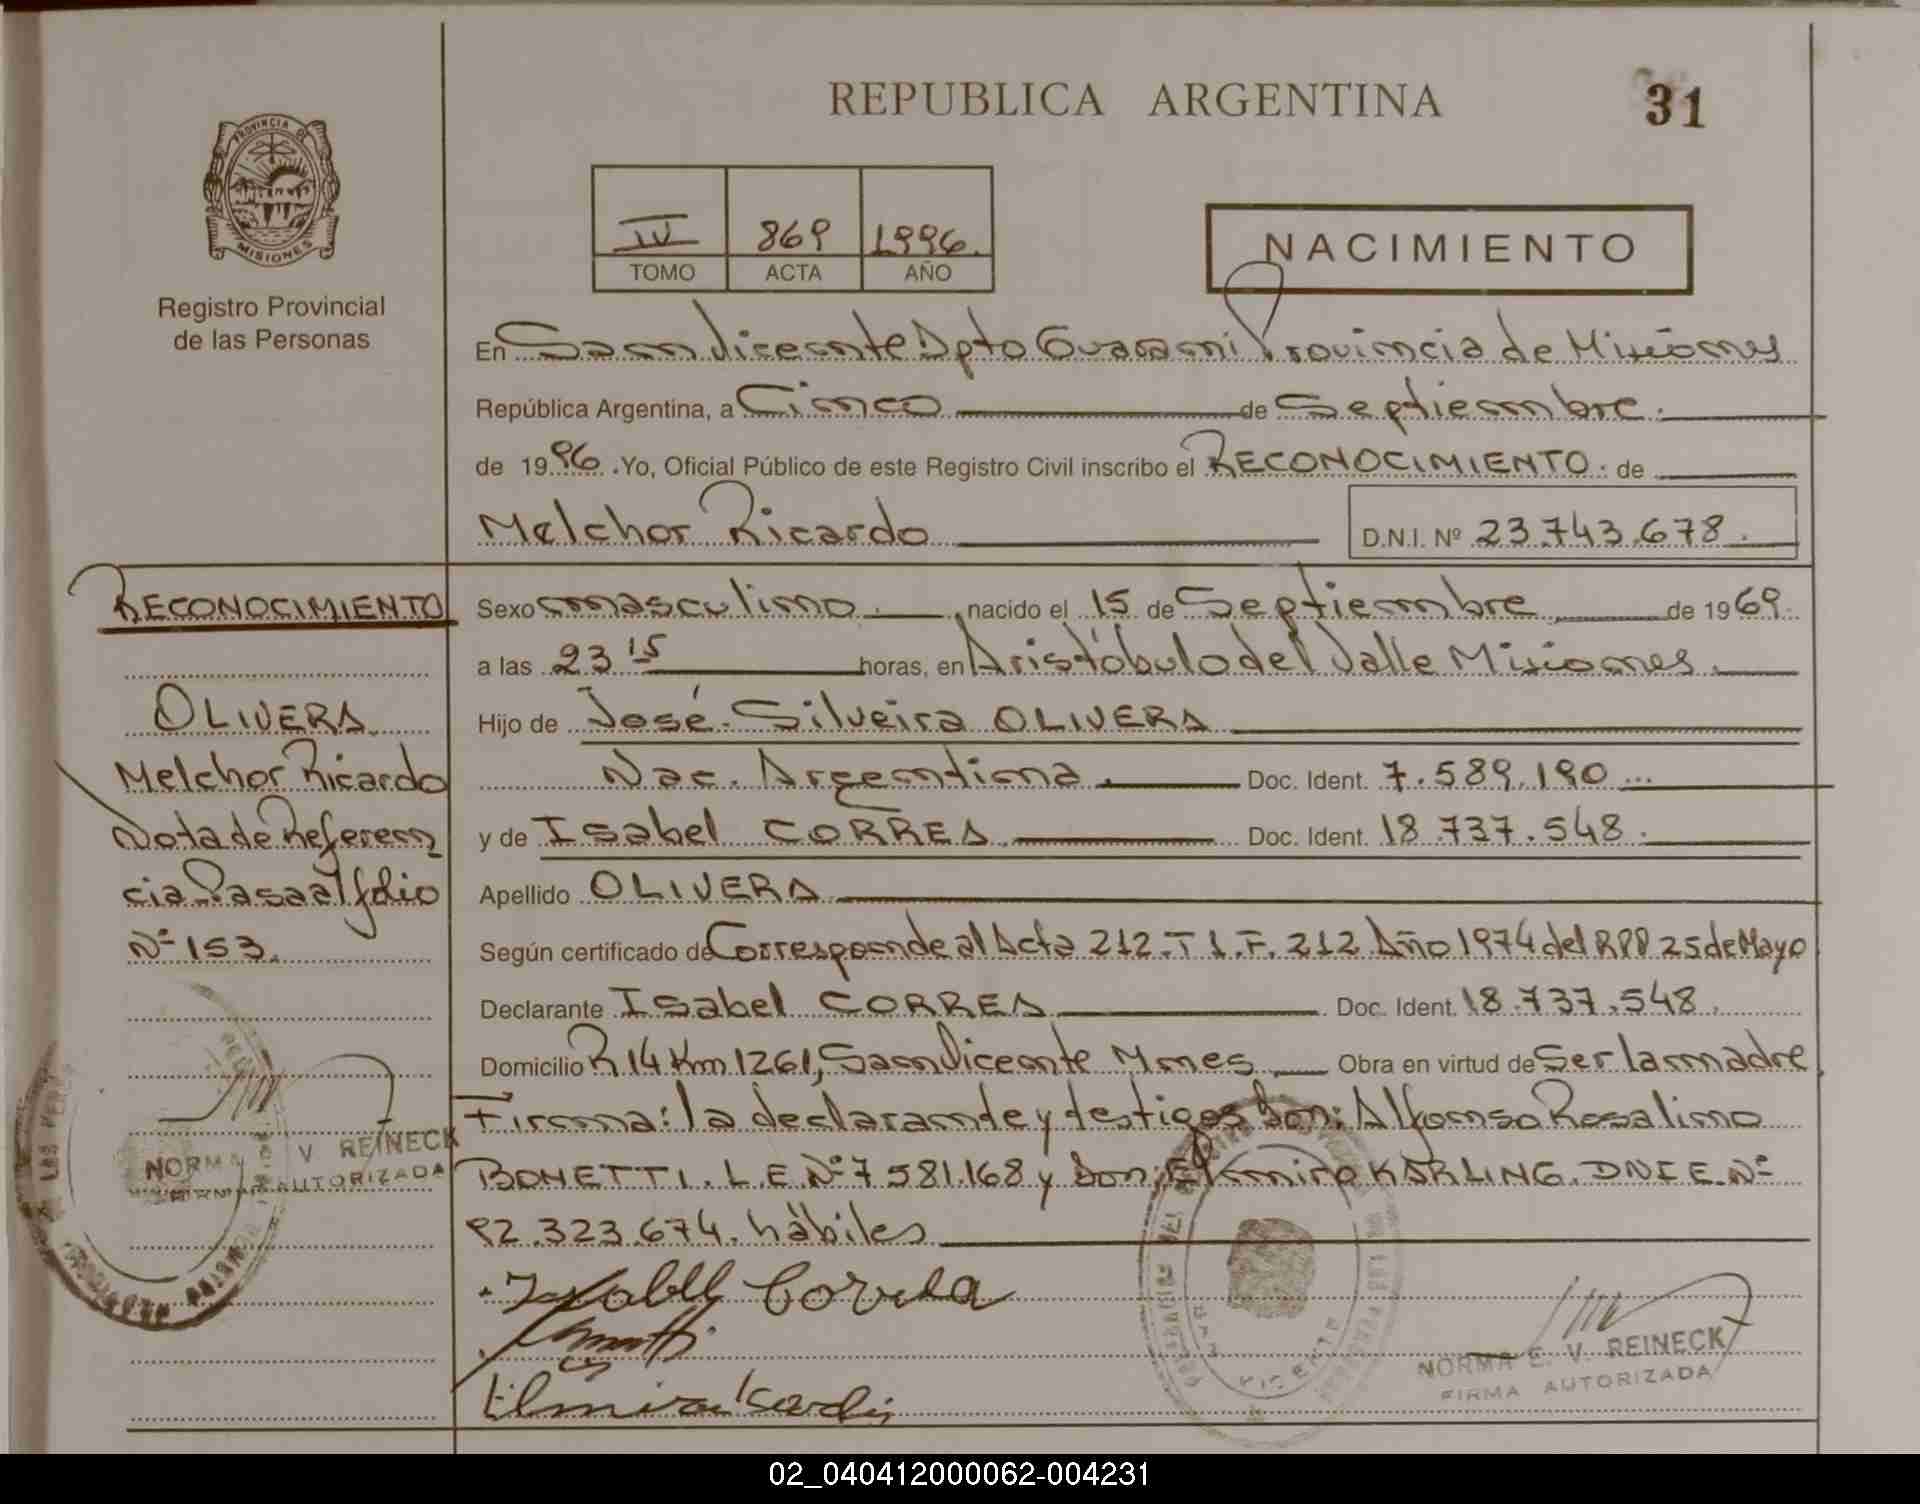 REPUBLICA ARGENTINA
31
PROVINCIA DE
MISIONES
Registro Provincial
de las Personas
IV 869 1996.
TOMO ACTA AÑO
NACIMIENTO
En San Vicente Dpto Guarani Provincia de Misiones
República Argentina, a Cinco de Septiembre.
de 1996. Yo, Oficial Público de este Registro Civil inscribo el RECONOCIMIENTO. de
Melchor Ricardo
D.N.I. Nº 23.743.678.
RECONOCIMIENTO
OLIVERA
Melchor Ricardo
Nota de Referen
cia Pasa al folio
Nº 153.
NORMA V REINECK
FIRMA AUTORIZADA
Sexo masculino. nacido el 15 de Septiembre de 1969.
a las 23 15 horas, en Aristóbulo del Valle Misiones.
Hijo de José Silveira OLIVERA
Nac. Argentina. Doc. Ident. 7.589.190
y de Isabel CORREA. Doc. Ident. 18.737.548.
Apellido OLIVERA
Según certificado de Corresponde al Acta 212.T 1.F. 212 Año 1974 del RPP 25 de Mayo
Declarante Isabel CORREA Doc. Ident. 18.737.548.
Domicilio R 14 Km 1261, San Vicente Mnes. Obra en virtud de Ser la madre
Firma: la declarante y testigos Don: Alfonso Rosalino
BONETTI. L.E.Nº 7 581.168 y Don: Elmiro KARLING. DNI E.Nº
92.323.674. hábiles
NORMA E. V. REINECK
FIRMA AUTORIZADA
02_040412000062-004231